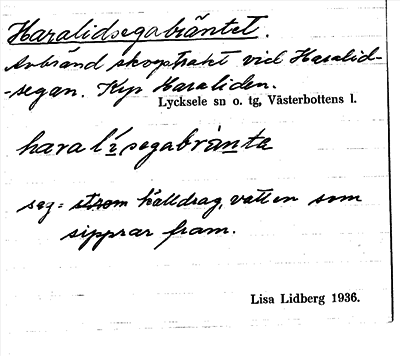 Haralidsegabräntet.
Avbränd skogstrakt vid Haralid-
-segan. Kyr Haraliden.
Lycksele sn o. tg, Västerbottens l.
haralísegabrànta
seg = strom källdrag, vatten som
sipprar fram.
Lisa Lidberg 1936.